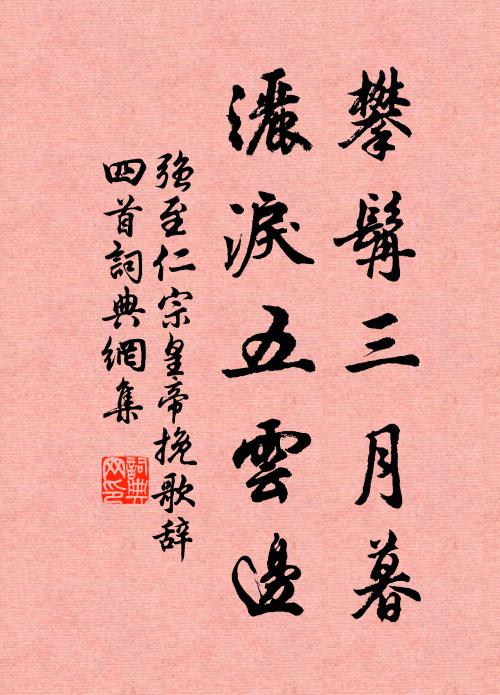 攀髯三月暮
灑淚五雲邊
強至仁宗皇帝挽歌辞
四首詞典網集
詞典网印